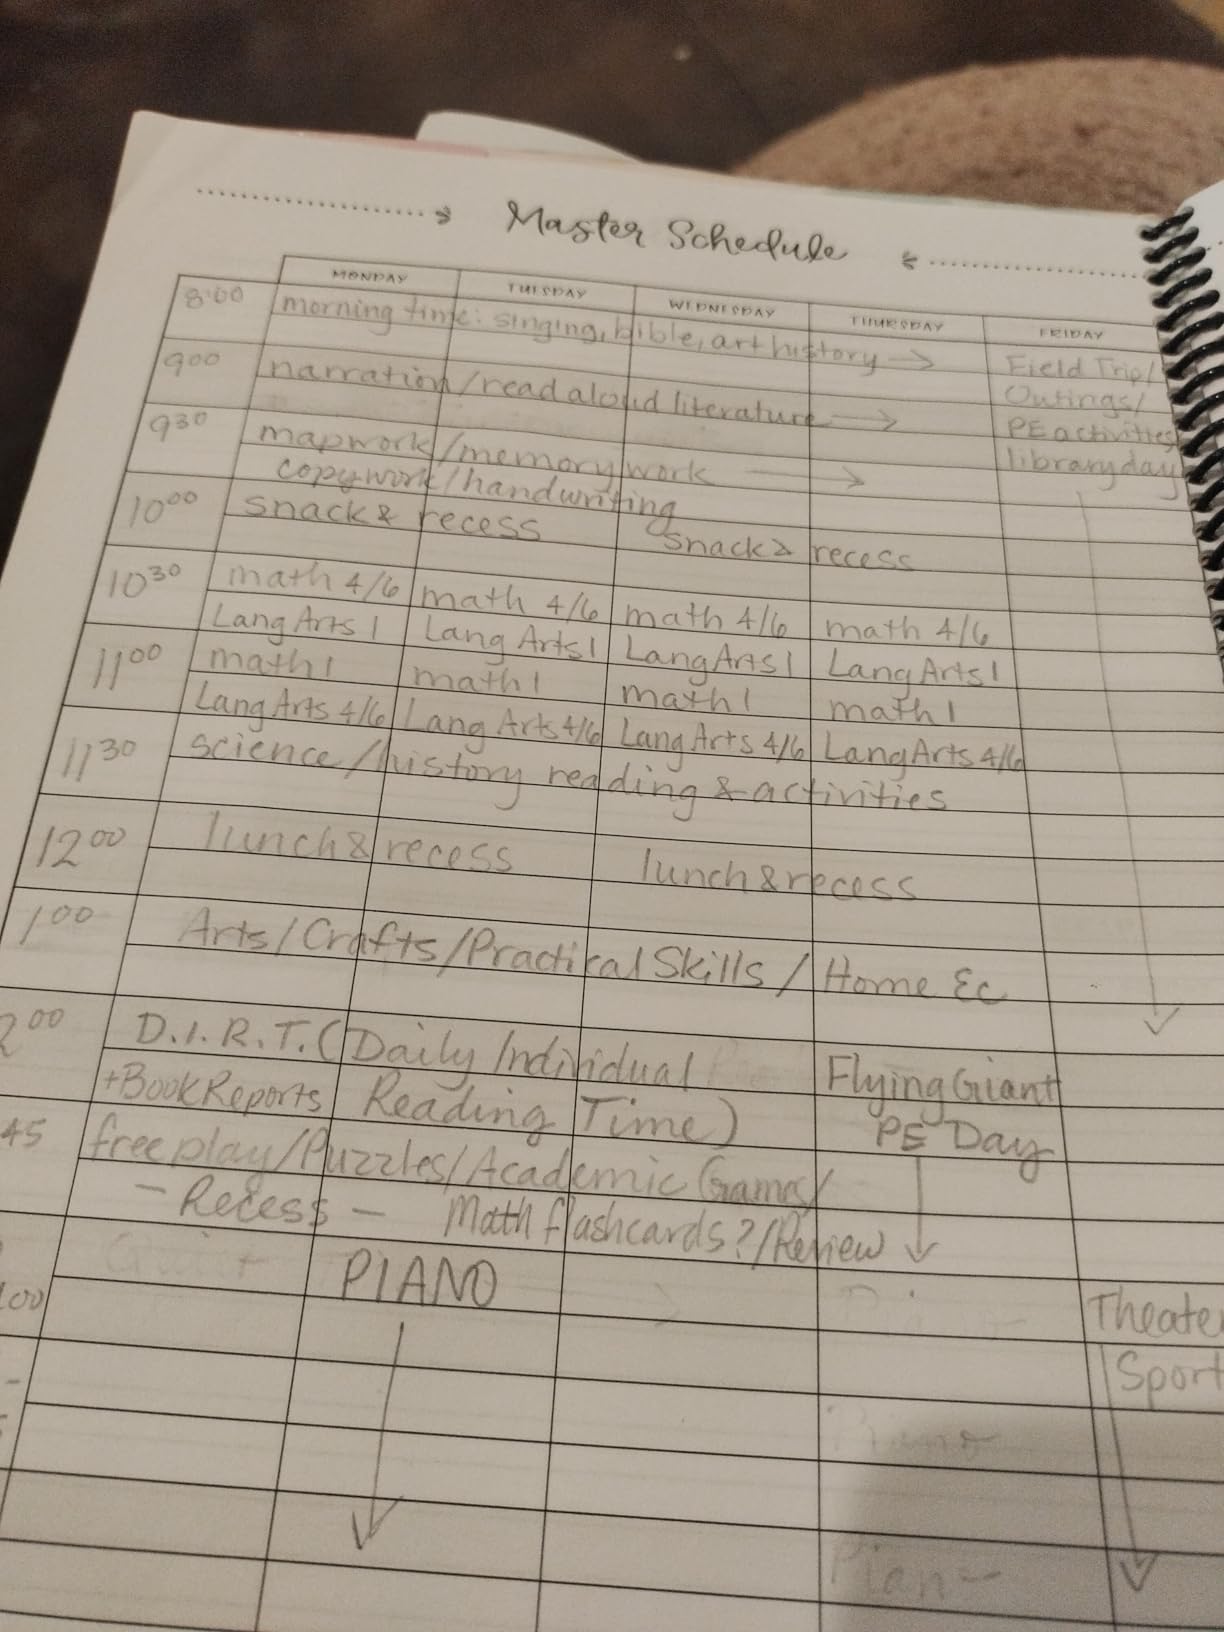 Master Schedule
MONDAY TUESDAY WEDNESDAY THURSDAY FRIDAY
8:00 morning time: singing, bible, art history → Field Trip/
Outings/
9⁰⁰ narration/read aloud literature → PE activities
library day
9³⁰ mapwork/memory work →
copywork/handwriting
10⁰⁰ snack & recess snack & recess
10³⁰ math 4/6 math 4/6 math 4/6 math 4/6
Lang Arts 1 Lang Arts 1 Lang Arts 1 Lang Arts 1
11⁰⁰ math 1 math 1 math 1 math 1
Lang Arts 4/6 Lang Arts 4/6 Lang Arts 4/6 Lang Arts 4/6
11³⁰ science/history reading & activities
12⁰⁰ lunch & recess lunch & recess
1⁰⁰ Arts/Crafts/Practical Skills/Home Ec
2⁰⁰ D.I.R.T. (Daily Individual Flying Giant
+Book Reports Reading Time) PE Day
45 free play/Puzzles/Academic Games/
- Recess - Math flashcards?/Review
PIANO
:00 Theater
Sport